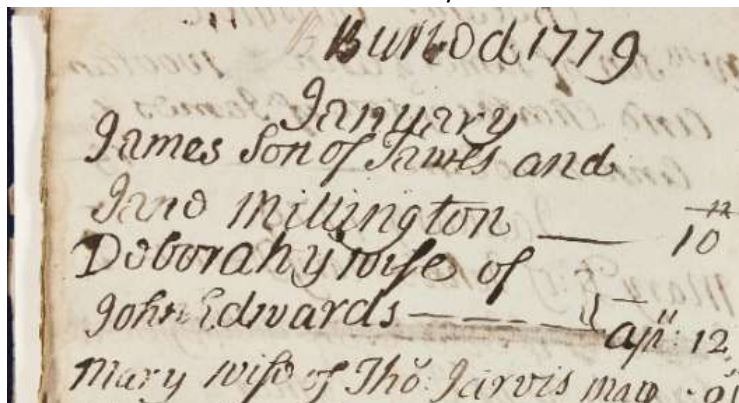 Buried 1779
January
James Son of James and
Jane Millington — 10
Deborah y wife of
John Edwards — — — — ap: 12
Mary wife of Tho: Jarvis may